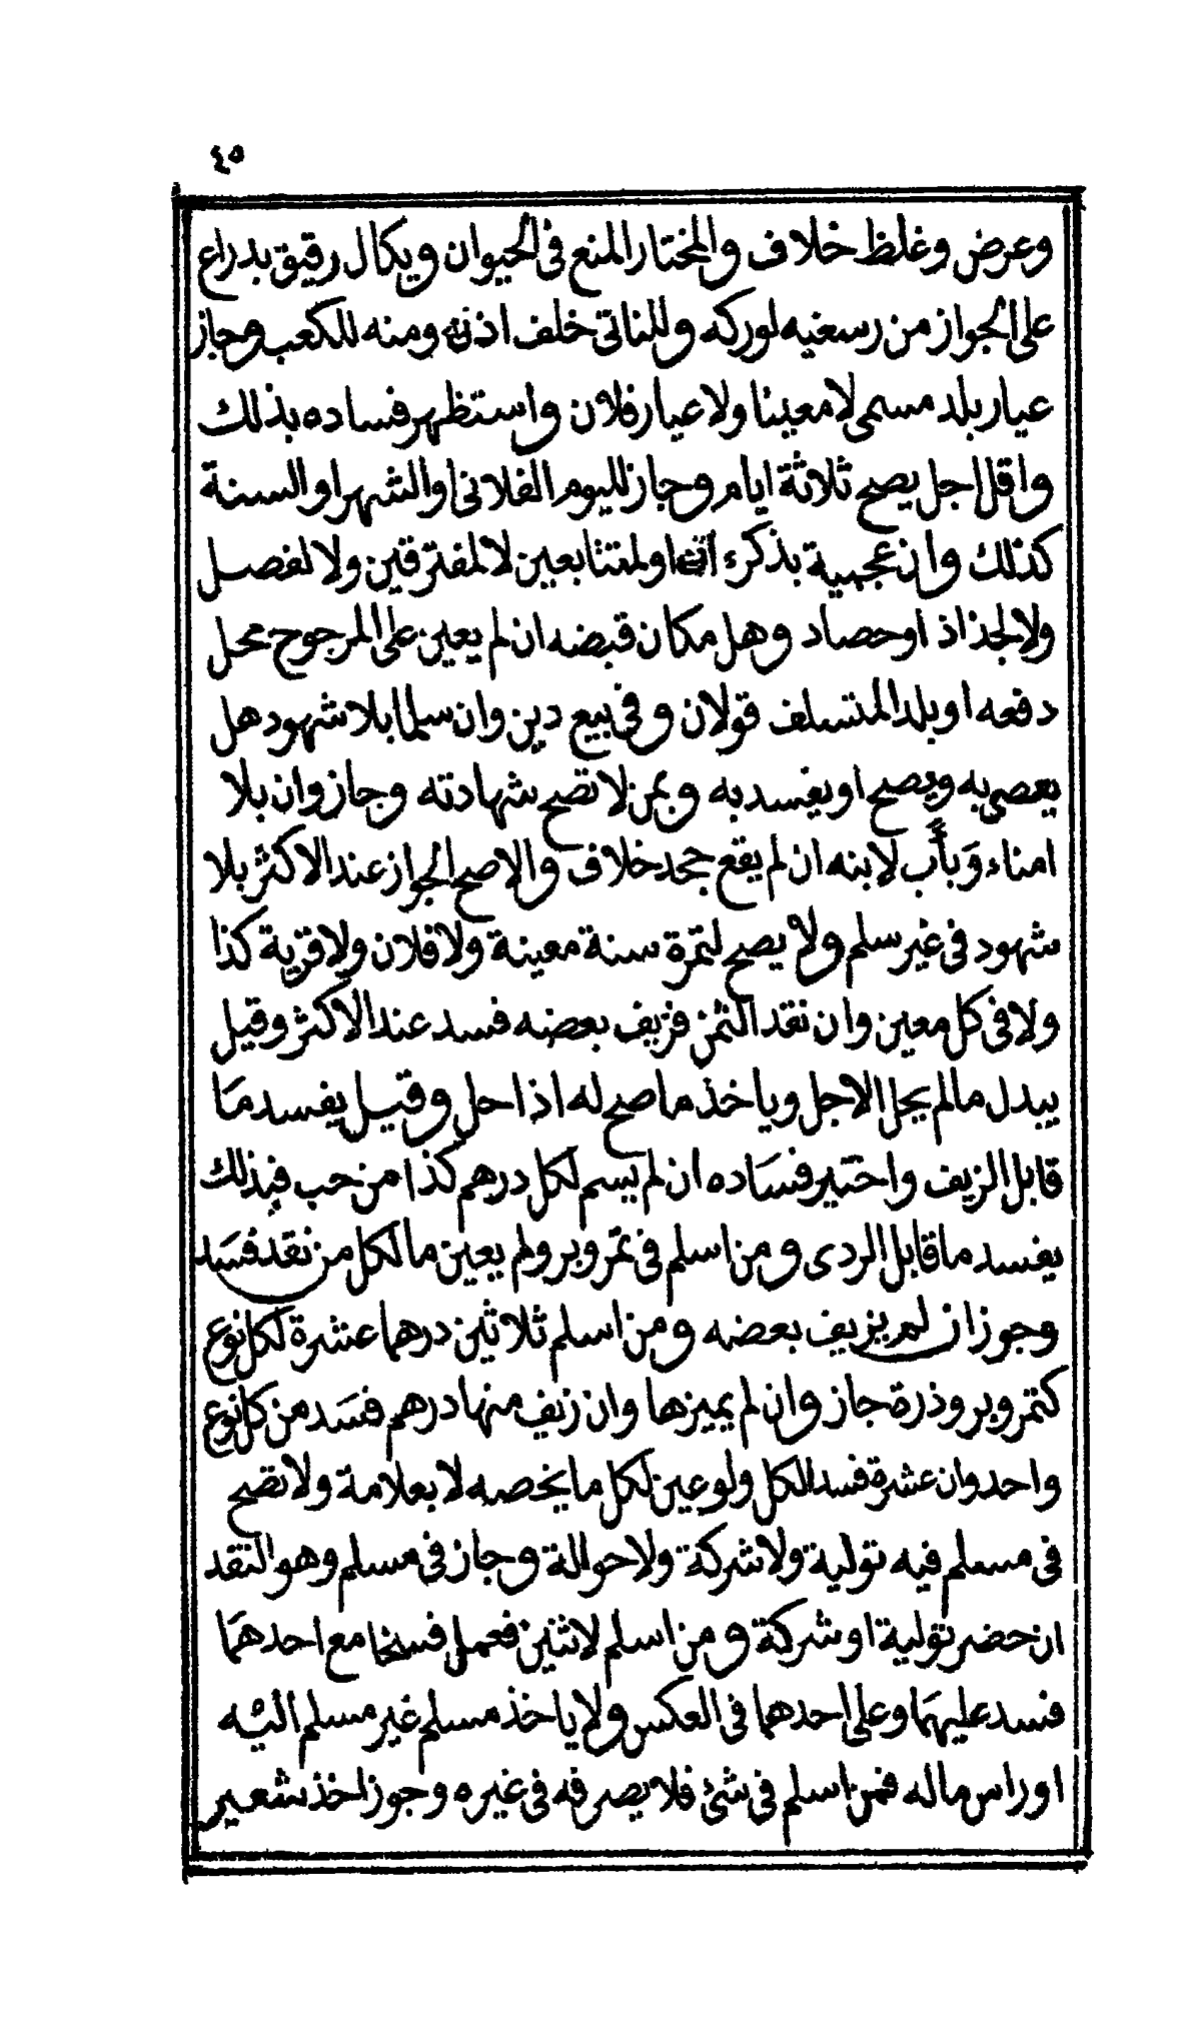 ٤٥
وعرض وغلظ خلاف والمختار المنع فى الحيوان ويكال رقيق بدراع
على الجواز من رسغيه لوركه وللناتى خلف اذنه ومنه للكعب وجاز
عيار بلد مسمى لا معينا ولا عيار فلان واستظهر فساده بذلك
واقل اجل يصح ثلاثة ايام وجاز لليوم الفلانى او الشهر او السنة
كذلك وان عجمية بذكرء او لمتتابعين لا لمفترقين ولا لفصل
ولا لجذاذ او حصاد وهل مكان قبضه ان لم يعين على المرجوح محل
دفعه او بلد المتسلف قولان وفى بيع دين وان سلما بلا شهود هل
يعصى به ويصح او يفسد به وبمن لا تصح شهادته وجاز وان بلا
امناء وَبأَب لابنه ان لم يقع جحد خلاف والاصح الجواز عند الاكثر بلا
شهود فى غير سلم ولا يصح لثمرة سنة معينة ولا فلان ولا قرية كذا
ولا فى كل معين وان نقد الثمن فزيف بعضه فسد عند الاكثر وقيل
يبدل ما لم يحل الاجل وياخذ ما صح له اذا حل وقيل يفسد مَا
قابل الزيف واختير فسَاده ان لم يسم لكل درهم كذا من حب فبذلك
يفسد ما قابل الردى ومن اسلم فى تمر وبر ولم يعين ما لكل من نقد فسَد
وجوز ان لم يزيف بعضه ومن اسلم ثلاثين درهما عشرة لكل نوع
كتمر وبر وذرة جاز وان لم يميزها وان زيف منها درهم فسَد من كل نوع
واحد وان عشرة فسد الكل ولو عين لكل ما يخصه لا بعلامة ولا تصح
فى مسلم فيه تولية ولا شركة ولا حوالة وجاز فى مسلم وهو النقد
ان حضر تولية او شركة ومن اسلم لاثنين فعمل فسخا مع احدهمَا
فسد عليهمَا وعلى احدهما فى العكس ولا ياخذ مسلم غير مسلم اليْه
او راس ماله فمن اسلم فى شئ فلا يصرفه فى غيره وجوز اخذ شعير